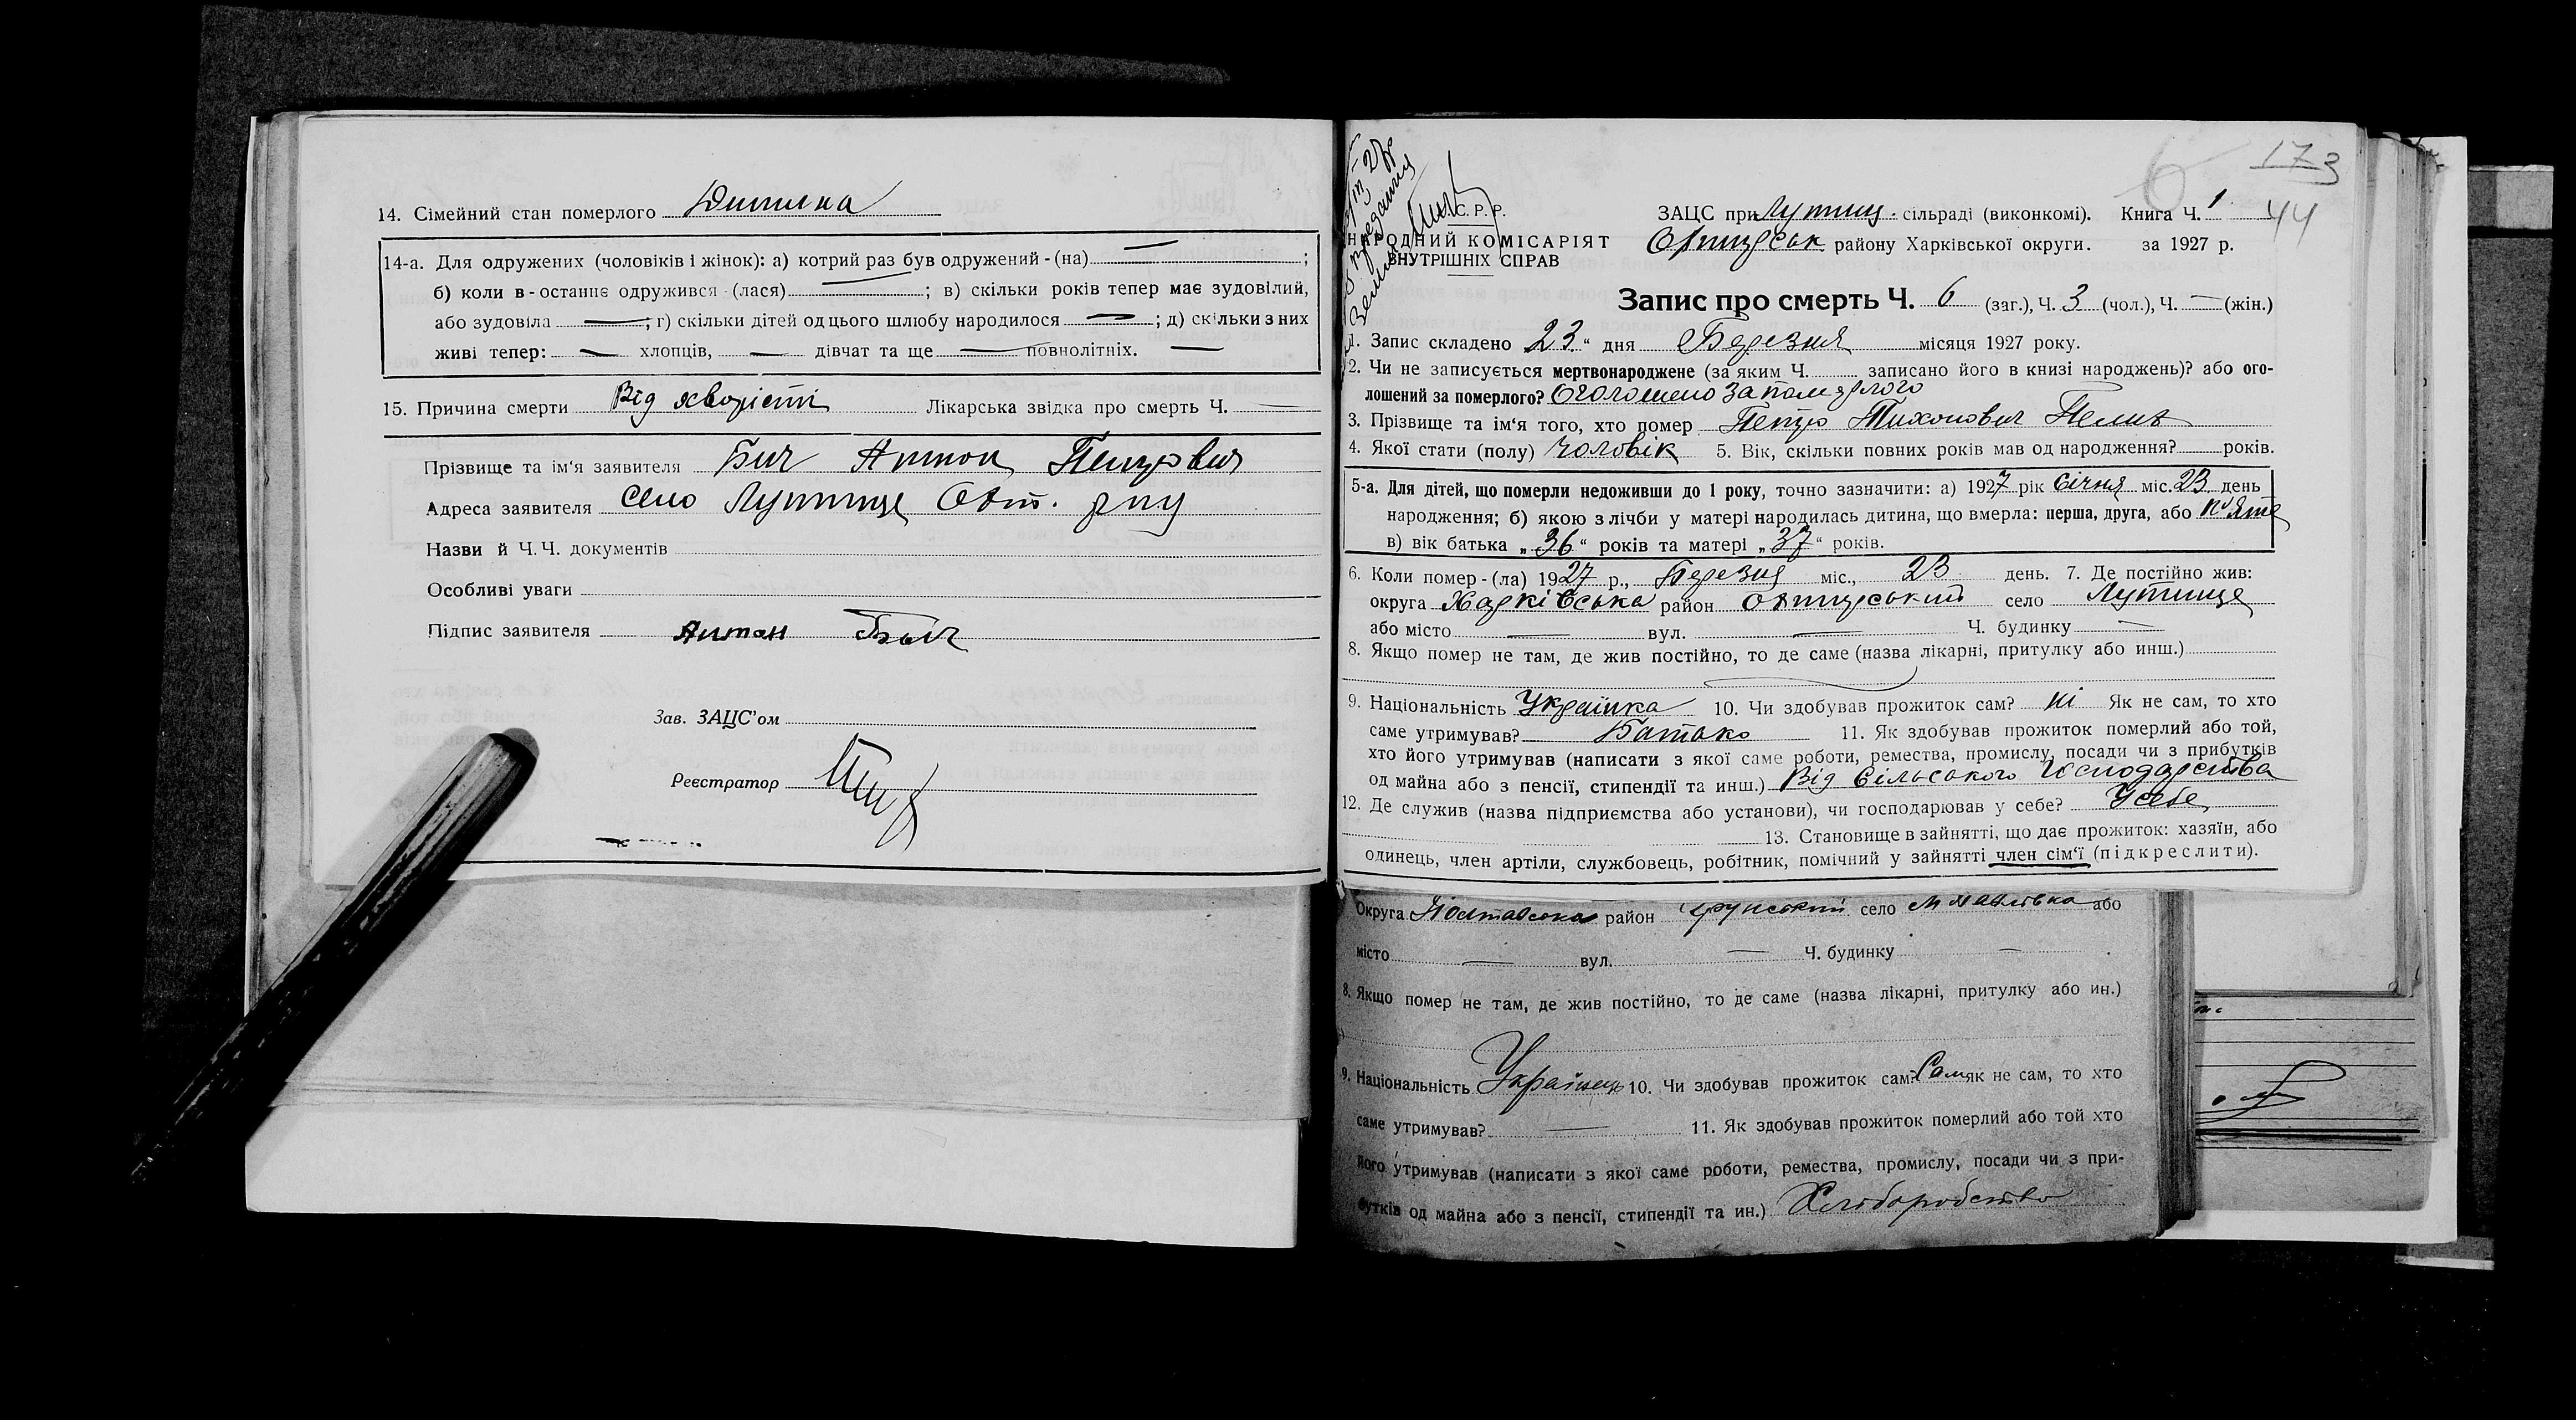 14. Сімейний стан померлого Дитина
14-а. Для одружених (чоловіків і жінок): а) котрий раз був одружений - (на) — ;
б) коли в - останнє одружився - (лася) — ; в) скільки років тепер має зудовілий,
або зудовіла — ; г) скільки дітей од цього шлюбу народилося — ; д) скільки з них
живі тепер: — хлопців, — дівчат та ще — повнолітніх. —
15. Причина смерти Від хворісті Лікарська звідка про смерть Ч. —
Прізвище та ім'я заявителя Бич Антон Петрович
Адреса заявителя село Лутище Охт. рну
Назви й Ч. Ч. документів
Особливі уваги
Підпис заявителя Антон Быч
Зав. ЗАЦС'ом
Реєстратор
17 3
6
44
С. Р. Р.
НАРОДНИЙ КОМІСАРІЯТ
ВНУТРІШНІХ СПРАВ
ЗАЦС при Лутищ. сільраді (виконкомі). Книга Ч. 1
району Харківської округи. за 1927 р.
Запис про смерть Ч. 6 (заг.), Ч. 3 (чол.), Ч. — (жін.)
1. Запис складено 23 " дня Березня місяця 1927 року.
2. Чи не записується мертвонароджене (за яким Ч. записано його в книзі народжень)? або ого-
лошений за померлого? Оголошено за помэрлого
3. Прізвище та ім'я того, хто помер Петро Тихонович
4. Якої стати (полу) Чоловік 5. Вік, скільки повних років мав од народження? років.
5-а. Для дітей, що померли недоживши до 1 року, точно зазначити: а) 1927 рік Січня міс. 23 день
народження; б) якою з лічби у матері народилась дитина, що вмерла: перша, друга, або п'ята
в) вік батька „ 36 " років та матері „ 37 " років.
6. Коли помер - (ла) 1927 р., Березня міс., 23 день. 7. Де постійно жив:
округа Харківська район Охтирський село Лутище
або місто — вул. — Ч. будинку —
8. Якщо помер не там, де жив постійно, то де саме (назва лікарні, притулку або инш.)
9. Національність Українка 10. Чи здобував прожиток сам? ні Як не сам, то хто
саме утримував? Батько 11. Як здобував прожиток померлий або той,
хто його утримував (написати з якої саме роботи, ремества, промислу, посади чи з прибутків
од майна або з пенсії, стипендії та инш.) Від сільського господарства
12. Де служив (назва підприємства або установи), чи господарював у себе? У себе
13. Становище в зайнятті, що дає прожиток: хазяїн, або
одинець, член артіли, службовець, робітник, помічний у зайнятті член сім'ї (підкреслити).
Округа Полтавська район село або
місто — вул. — Ч. будинку —
8. Якщо помер не там, де жив постійно, то де саме (назва лікарні, притулку або ин.)
9. Національність Українець 10. Чи здобував прожиток сам? Сам як не сам, то хто
саме утримував? — 11. Як здобував прожиток померлий або той хто
його утримував (написати з якої саме роботи, ремества, промислу, посади чи з при-
бутків од майна або з пенсії, стипендії та ин.) Хліборобство